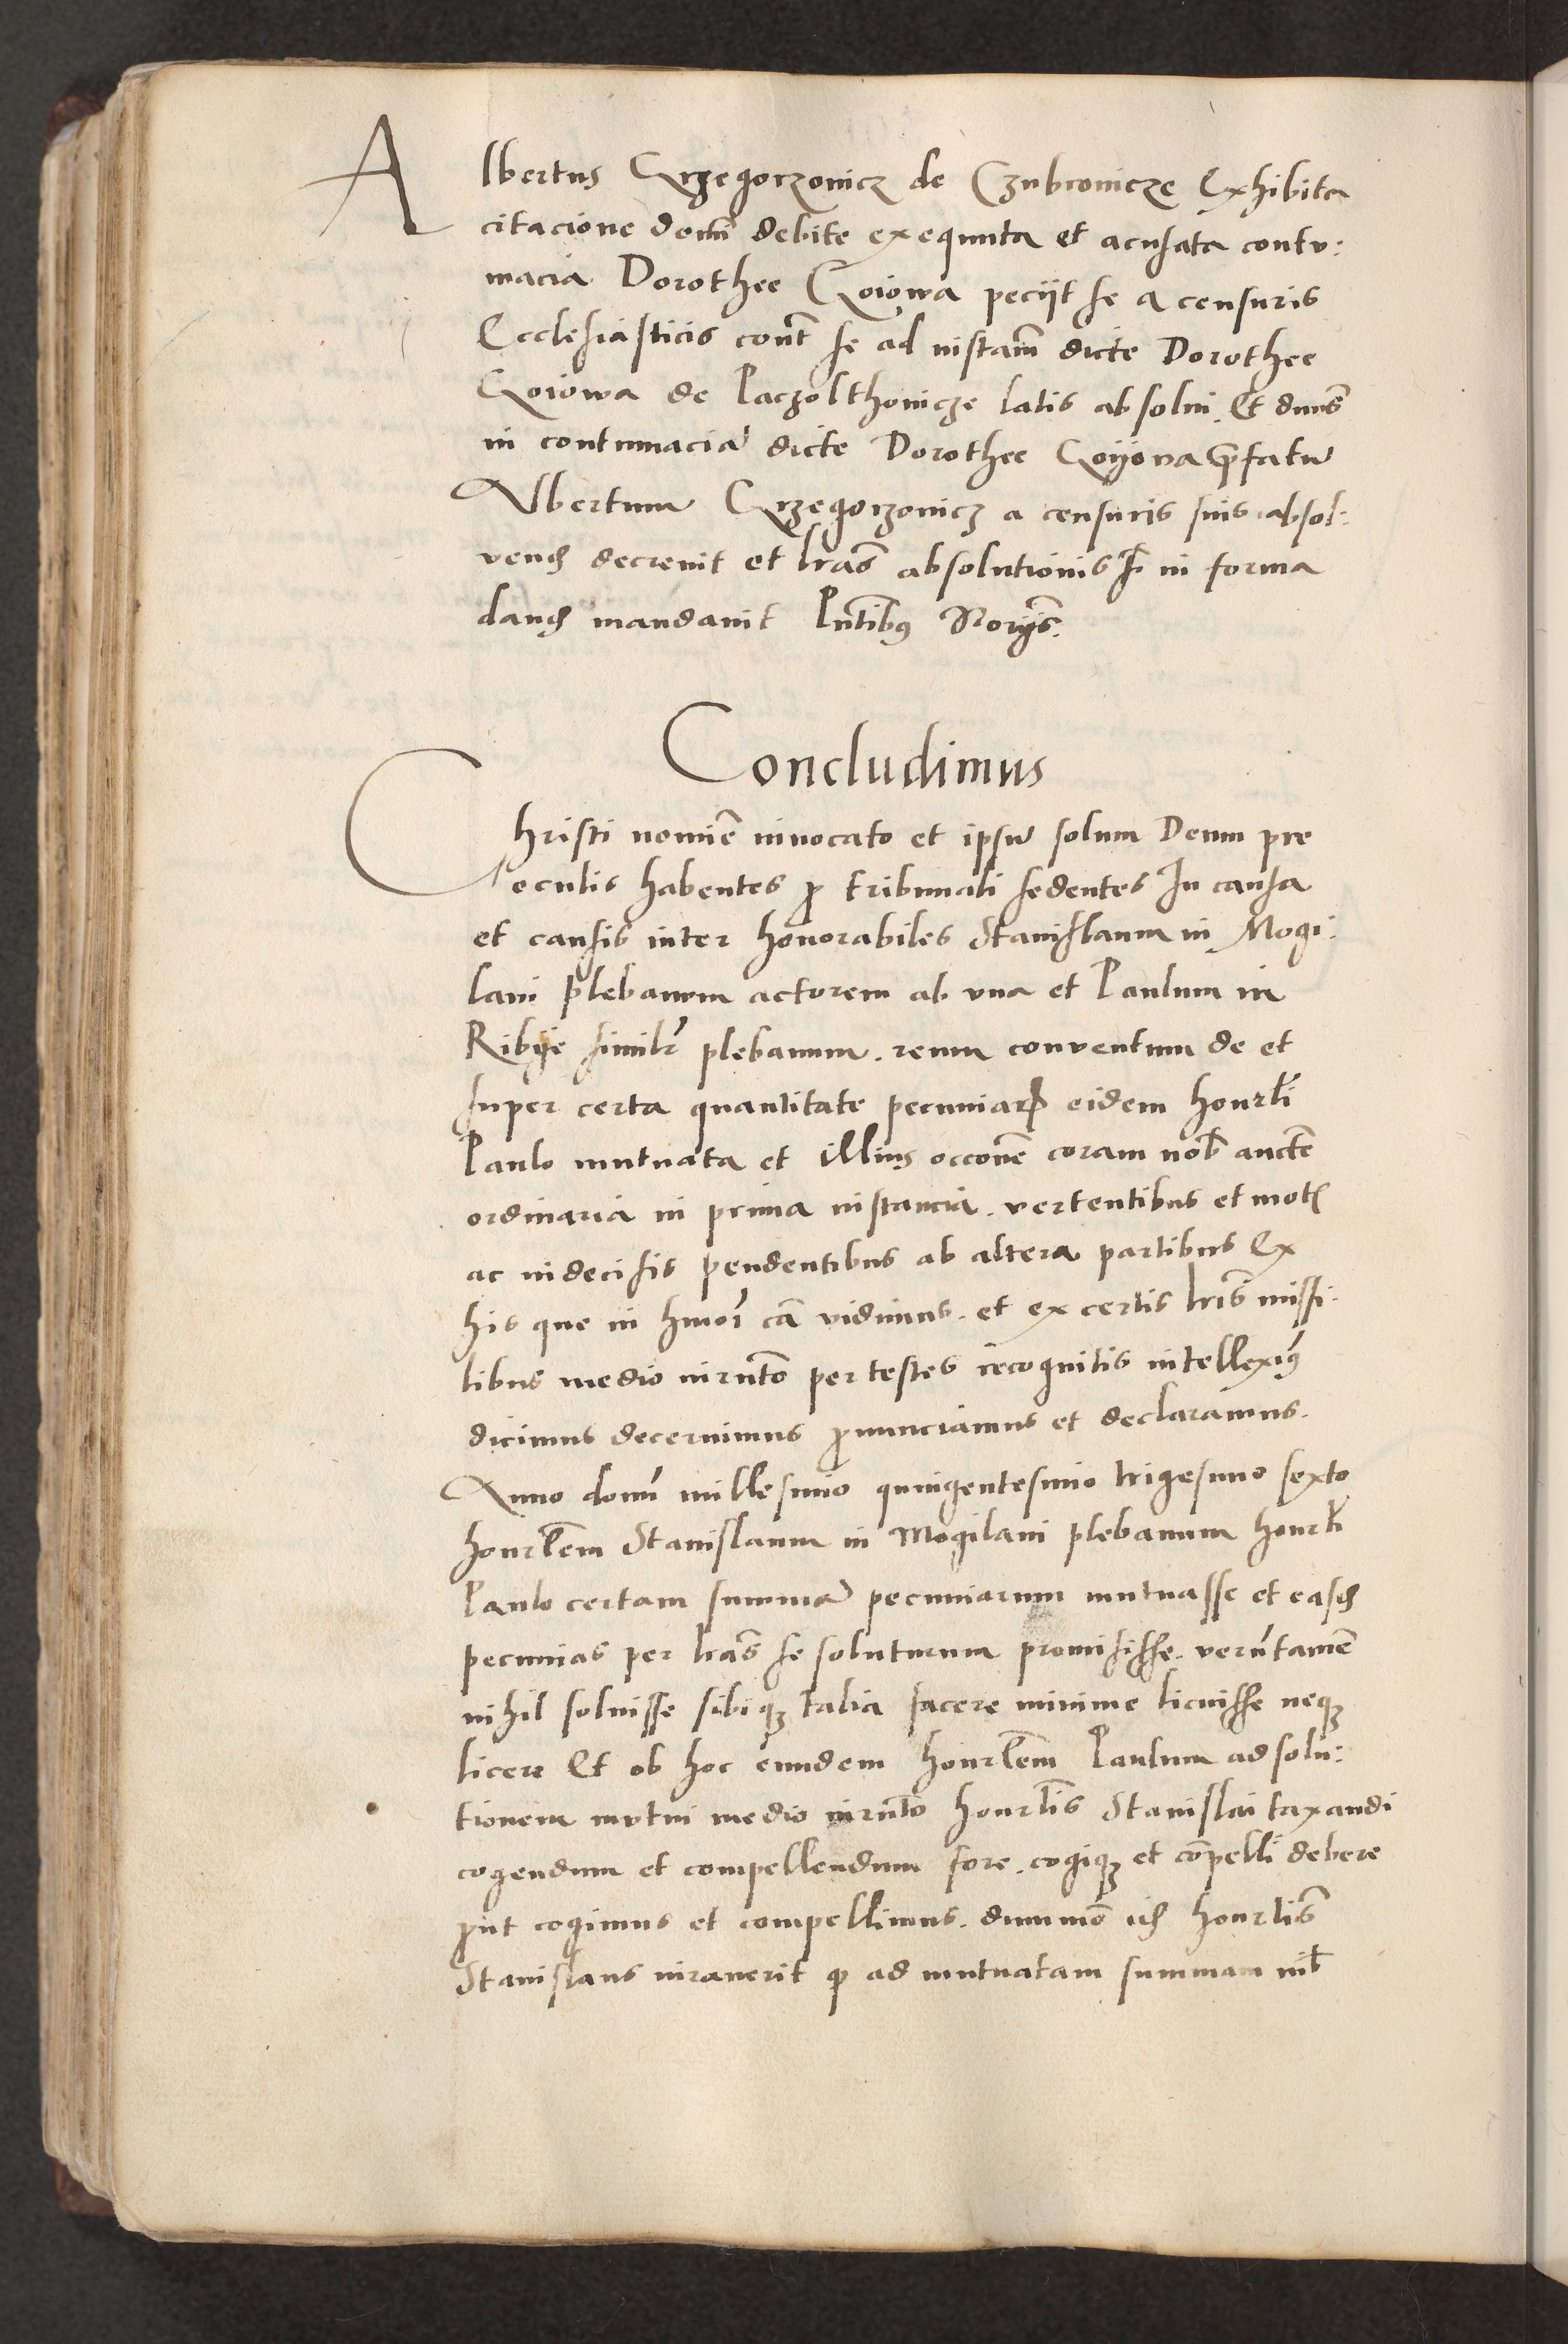 Albertus Grzegorzowicz de Czubrowicze Exhibita
citacione domi debite exequuta et acusata contu:
macia Dorothee Goiowa peciit se a censuris
Ecclesiasticis cont se ad instam dicte Dorothee
Goiowa de Paczolthowicze latis absolui. Et dnus
in contumacia dicte Dorothee Goyowa prefatu
Albertum Grzegorzowicz a censuris suis absol:
vend decreuit et lras absolutionis in forma
dand mandauit Pntibus Norys.
Concludimus
Christi nomie inuocato et ipsu solum Deum pre
oculis habentes pro tribunali sedentes In causa
et causis inter honorabiles Stanislaum in Mogi:
lani plebanum actorem ab vna et Paulum in
Ribye similr plebanum. reum conuentum de et
super certa quantitate pecuniar eidem honrli
Paulo mutuata et illius occone coram nob aucte
ordinaria in prima instancia. vertentibus et mot
ac indecisis pendentibus ab altera partibus Ex
his que in hmoi ca vidimus. et ex certis lris missi:
libus medio iurnto per testes recognitis intelleximus
dicimus decernimus pronunciamus et declaramus.
Anno domi millesimo quingentesimo trigesimo sexto
honrlem Stanislaum in Mogilani plebanum honrli
Paulo certam summa pecuniarum mutuasse et easd
pecunias per lras se soluturum promisisse. veruntame
nihil soluisse sibiq talia facere minime licuisse neq
licere Et ob hoc eundem honrlem Paulum ad solu:
tionem mutui medio iurnto honrlis Stanislai taxandi
cogendum et compellendum fore. cogiq et copelli debere
prout cogimus et compellimus. dummo id honrlis
Stanislaus iurauerit q ad mutuatam summam nil